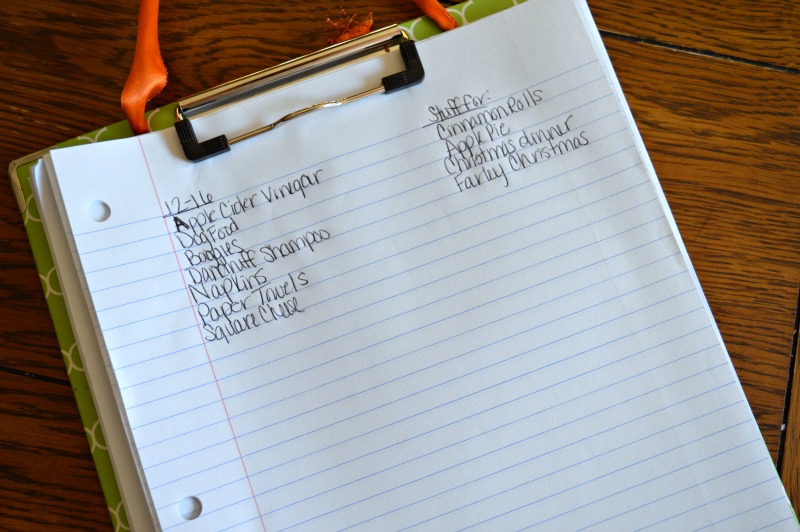 12-16
Apple Cider Vinegar
Dog Food
Baggies
Dandruff Shampoo
Napkins
Paper Towels
Square Cheese
Stuff for:
Cinnamon Rolls
Apple Pie
Christmas dinner
Farley Christmas